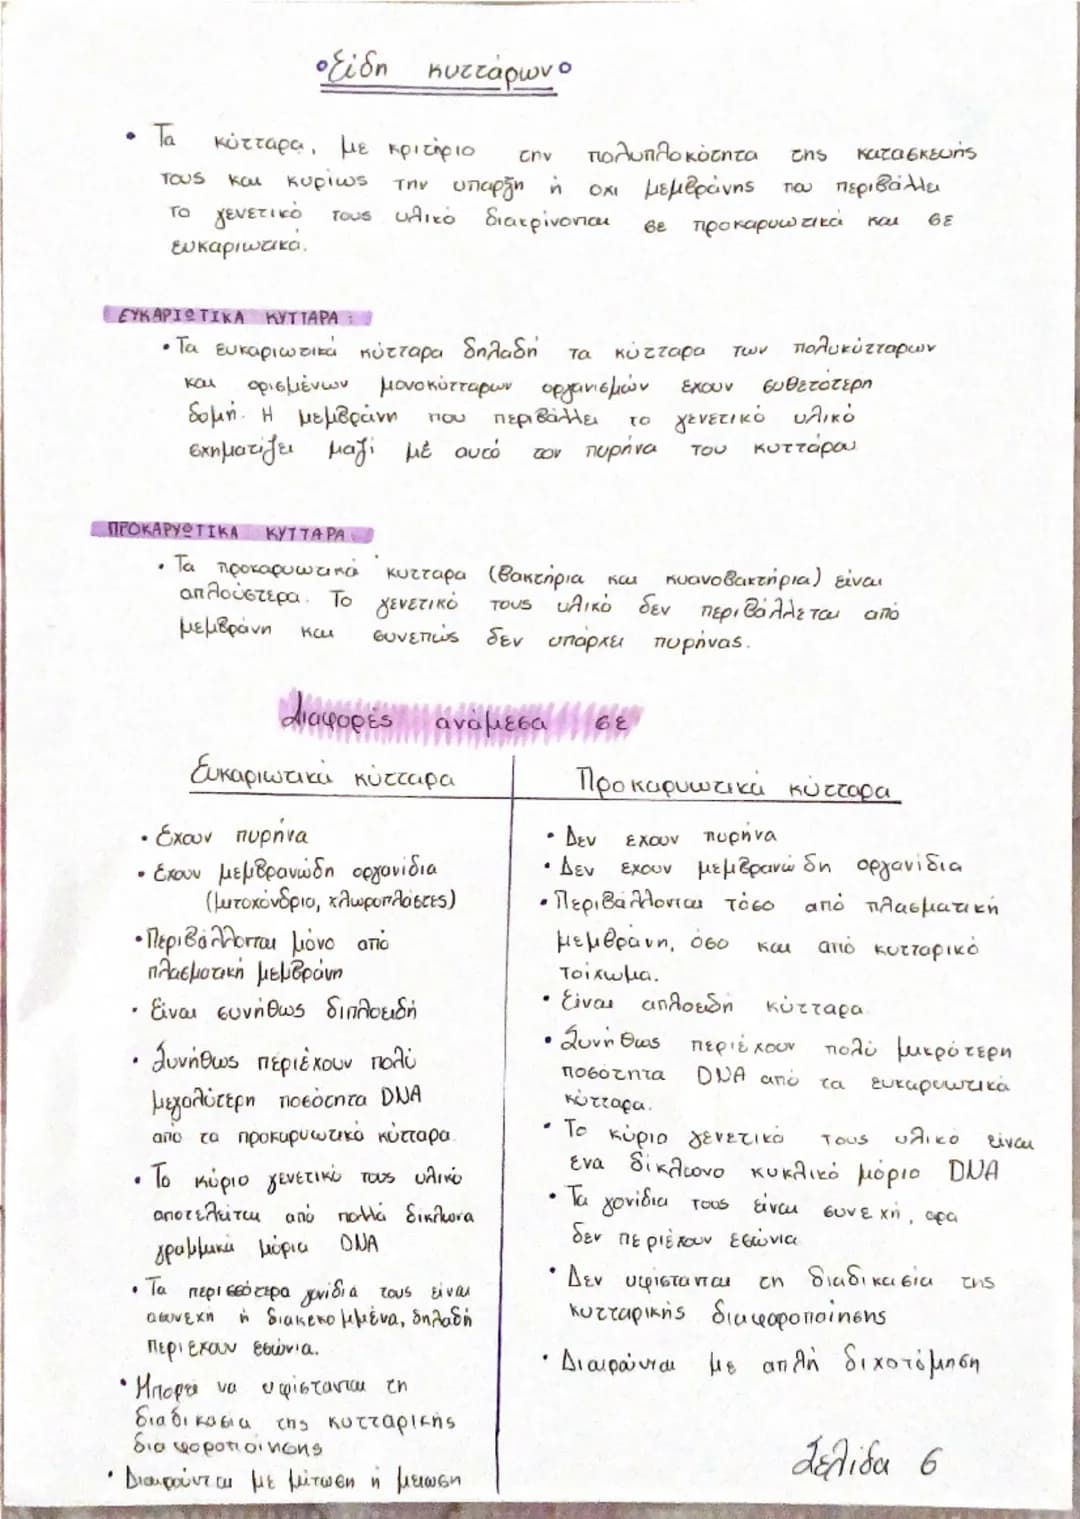 Είδη κυττάρων
• Τα κύτταρα, με κριτήριο την πολυπλοκότητα της κατασκευής
τους και κυρίως την υπαρξη ή οχι μεμβράνης που περιβάλλει
το γενετικό τους υλικό διακρίνονται σε προκαρυωτικά και σε
ευκαριωτικά.
ΕΥΚΑΡΙΩΤΙΚΑ ΚΥΤΤΑΡΑ :
• Τα ευκαριωτικά κύτταρα δηλαδή τα κύτταρα των πολυκύτταρων
και ορισμένων μονοκύτταρων οργανισμών έχουν συθετότερη
δομή. Η μεμβράνη που περιβάλλει το γενετικό υλικό
σχηματίζει μαζί με αυτό τον πυρήνα του κυττάρου
ΠΡΟΚΑΡΥΩΤΙΚΑ ΚΥΤΤΑΡΑ
• Τα προκαρυωτικά κύτταρα (βακτήρια και κυανοβακτήρια) είναι
απλούστερα. Το γενετικό τους υλικό δεν περιβάλλεται από
μεμβράνη και συνεπώς δεν υπάρχει πυρήνας.
Διαφορές ανάμεσα σε
Ευκαριωτικά κύτταρα
• Έχουν πυρήνα
• Έχουν μεμβρανώδη οργανίδια
(μιτοχόνδρια, χλωροπλάστες)
• Περιβάλλονται μόνο από
πλασματική μεμβράνη
• Είναι συνήθως διπλοειδή
• Συνήθως περιέχουν πολύ
μεγαλύτερη ποσότητα DNA
από τα προκαρυωτικά κύτταρα.
• Το κύριο γενετικό τους υλικό
αποτελείται από πολλά δίκλωνα
γραμμικά μόρια DNA
• Τα περισσότερα γονίδια τους είναι
ασυνεχή ή διακεκομμένα, δηλαδή
περιέχουν εσώνια.
• Μπορεί να υφίστανται τη
διαδικασία της κυτταρικής
διαφοροποίησης
• Διαιρούνται με μίτωση ή μείωση
Προκαρυωτικά κύτταρα
• Δεν έχουν πυρήνα
• Δεν έχουν μεμβρανώδη οργανίδια
• Περιβάλλονται τόσο από πλασματική
μεμβράνη, όσο και από κυτταρικό
τοίχωμα.
• Είναι απλοειδή κύτταρα
• Συνήθως περιέχουν πολύ μικρότερη
ποσότητα DNA από τα ευκαρυωτικά
κύτταρα.
• Το κύριο γενετικό τους υλικό είναι
ένα δίκλωνο κυκλικό μόριο DNA
• Τα γονίδια τους είναι συνεχή, αρα
δεν περιέχουν εσώνια
• Δεν υφίστανται τη διαδικασία της
κυτταρικής διαφοροποίησης
• Διαιρούνται με απλή διχοτόμηση
Σελίδα 6